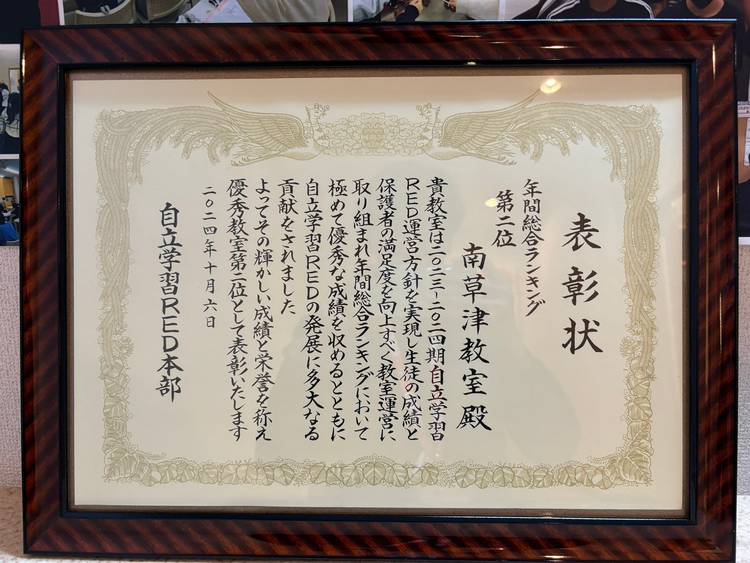 表彰状
年間総合ランキング
第二位
南草津教室 殿
貴教室は二〇二三～二〇二四期自立学習
RED運営方針を実現し生徒の成績と
保護者の満足度を向上すべく教室運営に
取り組まれ年間総合ランキングにおいて
極めて優秀な成績を収めるとともに
自立学習REDの発展に多大なる
貢献をされました
よってその輝かしい成績と栄誉を称え
優秀教室第二位として表彰いたします
二〇二四年十月六日
自立学習RED本部